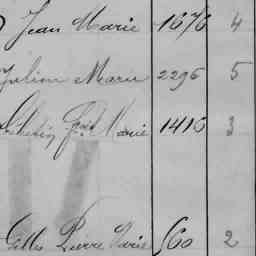 Jean Marie 1676 4
Julien Marie 2296 5
Marie 1416 3
Gilles Pierre Marie 560 2